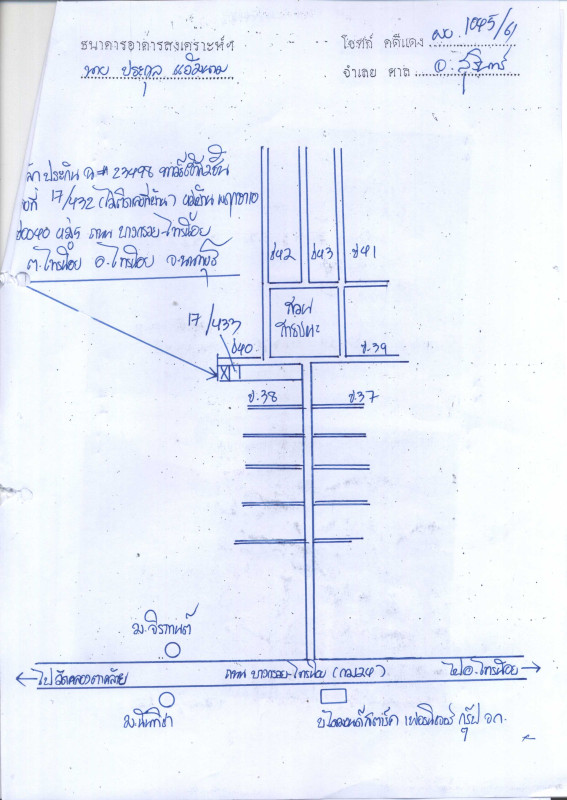 ธนาคารอาคารสงเคราะห์ฯ
โจทก์ คดีแดง ผบ. 1045/61
นาย ประกุล
จำเลย ศาล จ. สุรินทร์
ประกัน ฉ# 23498
ที่ 17/432 (ไม่ติดเลขที่บ้าน) หมู่บ้าน พฤกษา 10
ซอย 40 ถนน บางกรวย-ไทรน้อย
ต.ไทรน้อย อ.ไทรน้อย จ.นนทบุรี
ซ42 ซ43 ซ41
สวน
สาธารณะ
17/433
ซ40 ซ.39
ซ.38 ซ.37
ถนน บางกรวย-ไทรน้อย (กม.24)
ไปวัดคลองตาคล้าย
ไป อ.ไทรน้อย
ม.
บ. เฟอร์นิเจอร์ กรุ๊ป จก.